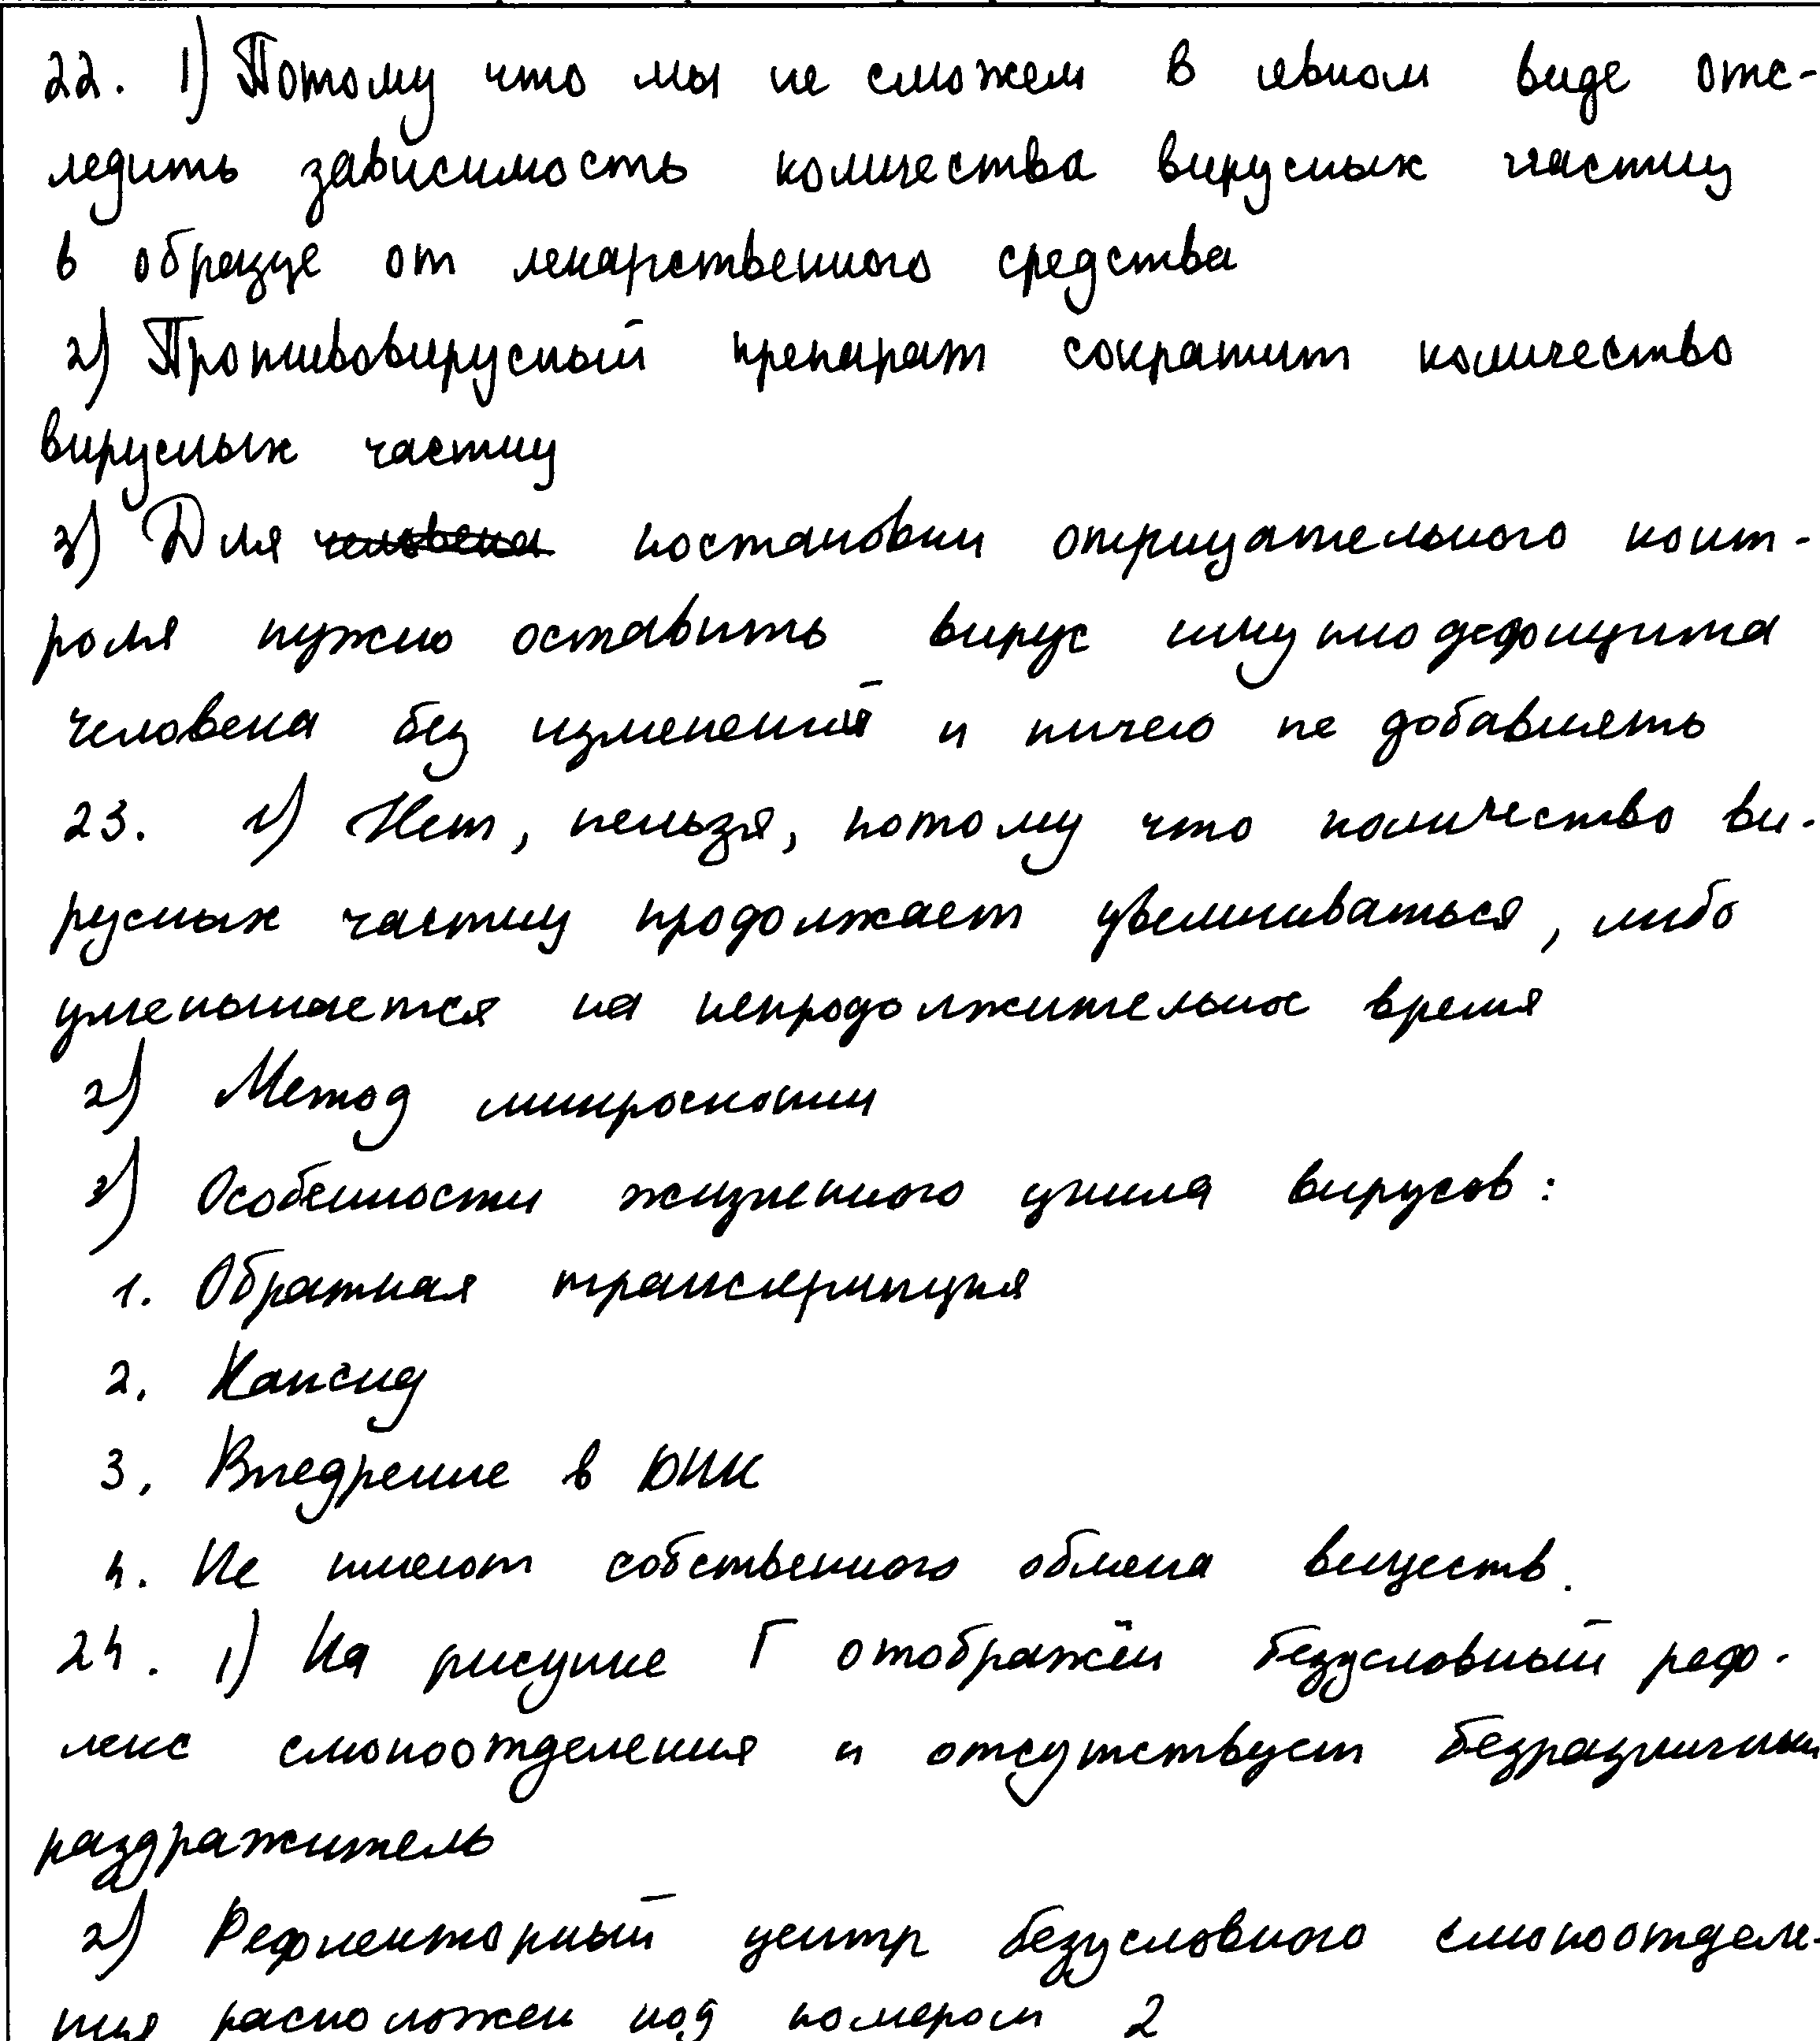 22. 1) Потому что мы не сможем в явном виде отс-
ледить зависимость количества вирусных частиц
в образце от лекарственного средства
2) Противовирусный препарат сократит количество
вирусных частиц
3) Для человека постановки отрицательного конт-
роля нужно оставить вирус иммунодефицита
человека без изменений и ничего не добавлять
23. 1) Нет, нельзя, потому что количество ви-
русных частиц продолжает увеличиваться, либо
уменьшается на непродолжительное время
2) Метод микроскопии
3) Особенности жизненного цикла вирусов:
1. Обратная транскрипция
2. Капсид
3. Внедрение в ДНК
4. Не имеют собственного обмена веществ.
24. 1) На рисунке Г отображён безусловный реф-
лекс слюноотделения и отсутствует безразличный
раздражитель
2) Рефлекторный центр безусловного слюноотделе-
ния расположен под номером 2